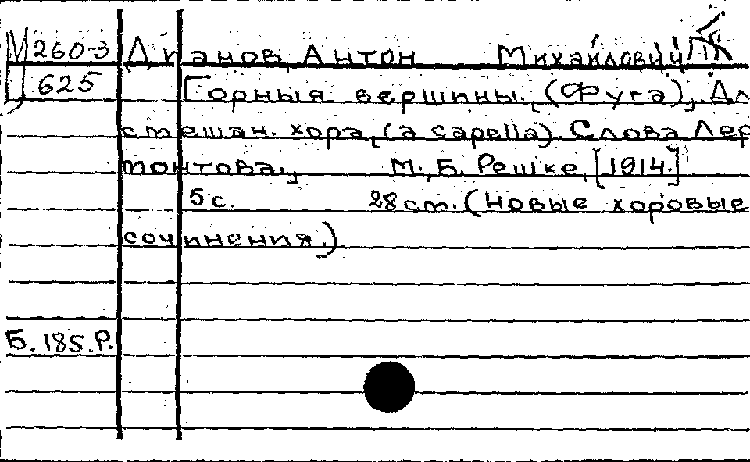 М 260-3 Дианов, Антон Михайлович
Ц 625 Горныя вершины. (Фуга), Дл
смешан. хора, (a capella). Слова Лер
монтова., М., Б. Решке, [1914.]
5 с. 28 cm. (Новые хоровые
сочинения.)
Б. 185.Р.